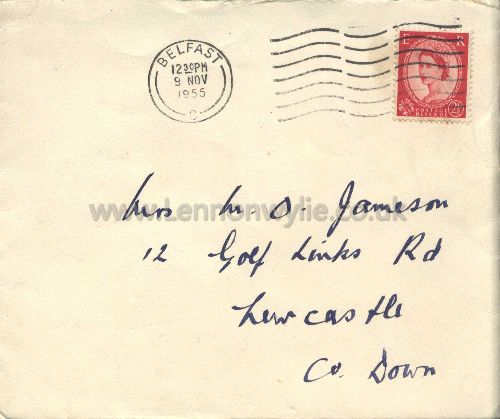 BELFAST
12 30 PM
9 NOV
1955
E R
POSTAGE
REVENUE
www.Lennonwylie.co.uk
Mrs M. O. Jameson
12 Golf Links Rd
Newcastle
Co. Down